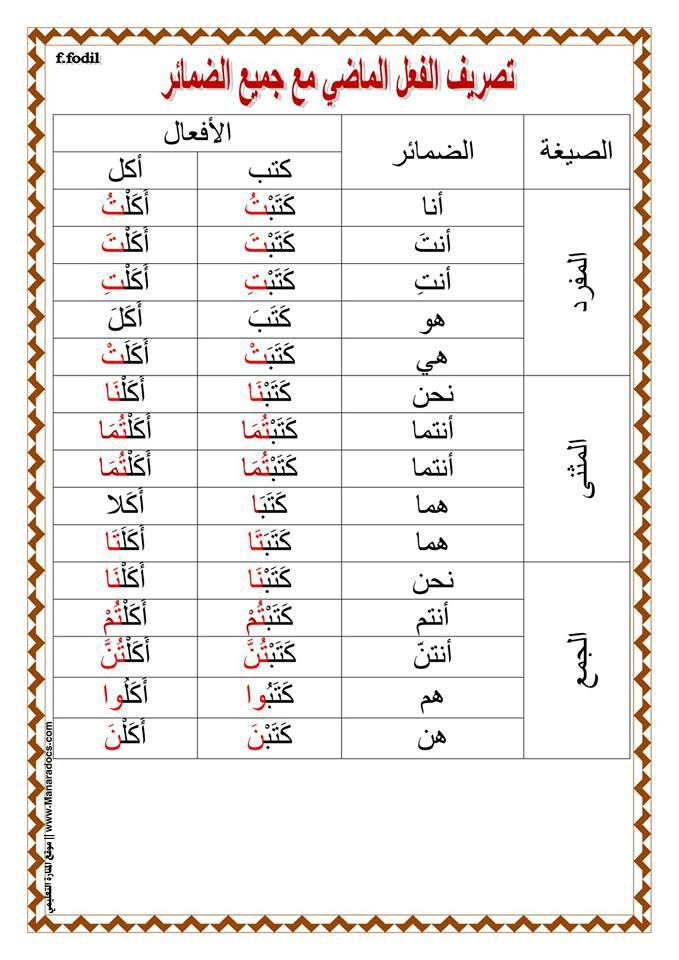 f.fodil
تصريف الفعل الماضي مع جميع الضمائر
الصيغة الضمائر الأفعال
كتب أكل
المفرد
أنا كَتَبْتُ أَكَلْتُ
أنتَ كَتَبْتَ أَكَلْتَ
أنتِ كَتَبْتِ أَكَلْتِ
هو كَتَبَ أَكَلَ
هي كَتَبَتْ أَكَلَتْ
المثنى
نحن كَتَبْنَا أَكَلْنَا
أنتما كَتَبْتُمَا أَكَلْتُمَا
أنتما كَتَبْتُمَا أَكَلْتُمَا
هما كَتَبَا أَكَلا
هما كَتَبَتَا أَكَلَتَا
الجمع
نحن كَتَبْنَا أَكَلْنَا
أنتم كَتَبْتُمْ أَكَلْتُمْ
أنتنّ كَتَبْتُنَّ أَكَلْتُنَّ
هم كَتَبُوا أَكَلُوا
هن كَتَبْنَ أَكَلْنَ
موقع المنارة التعليمي || www.Manaradocs.com